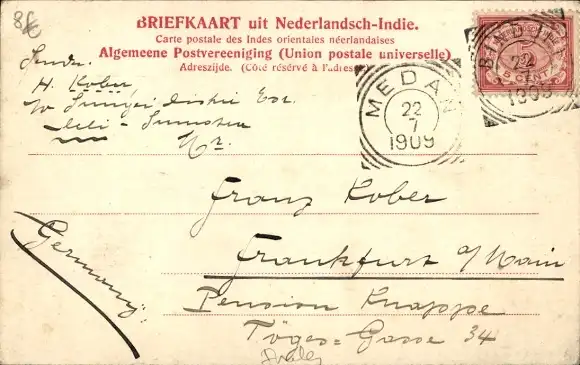 8€
BRIEFKAART uit Nederlandsch-Indie.
Carte postale des Indes orientales néerlandaises
Algemeene Postvereeniging (Union postale universelle)
Adreszijde. (Côté réservé à l'adresse)
5
5 CENT
BIN
22
7
1909
MEDAN
22
7
1909
Sender
H. Kober
Deli - Sumatra
Hr.
Franz Kober
Frankfurt a/Main
Germany
Pension Knappe
Töges= Gasse 34